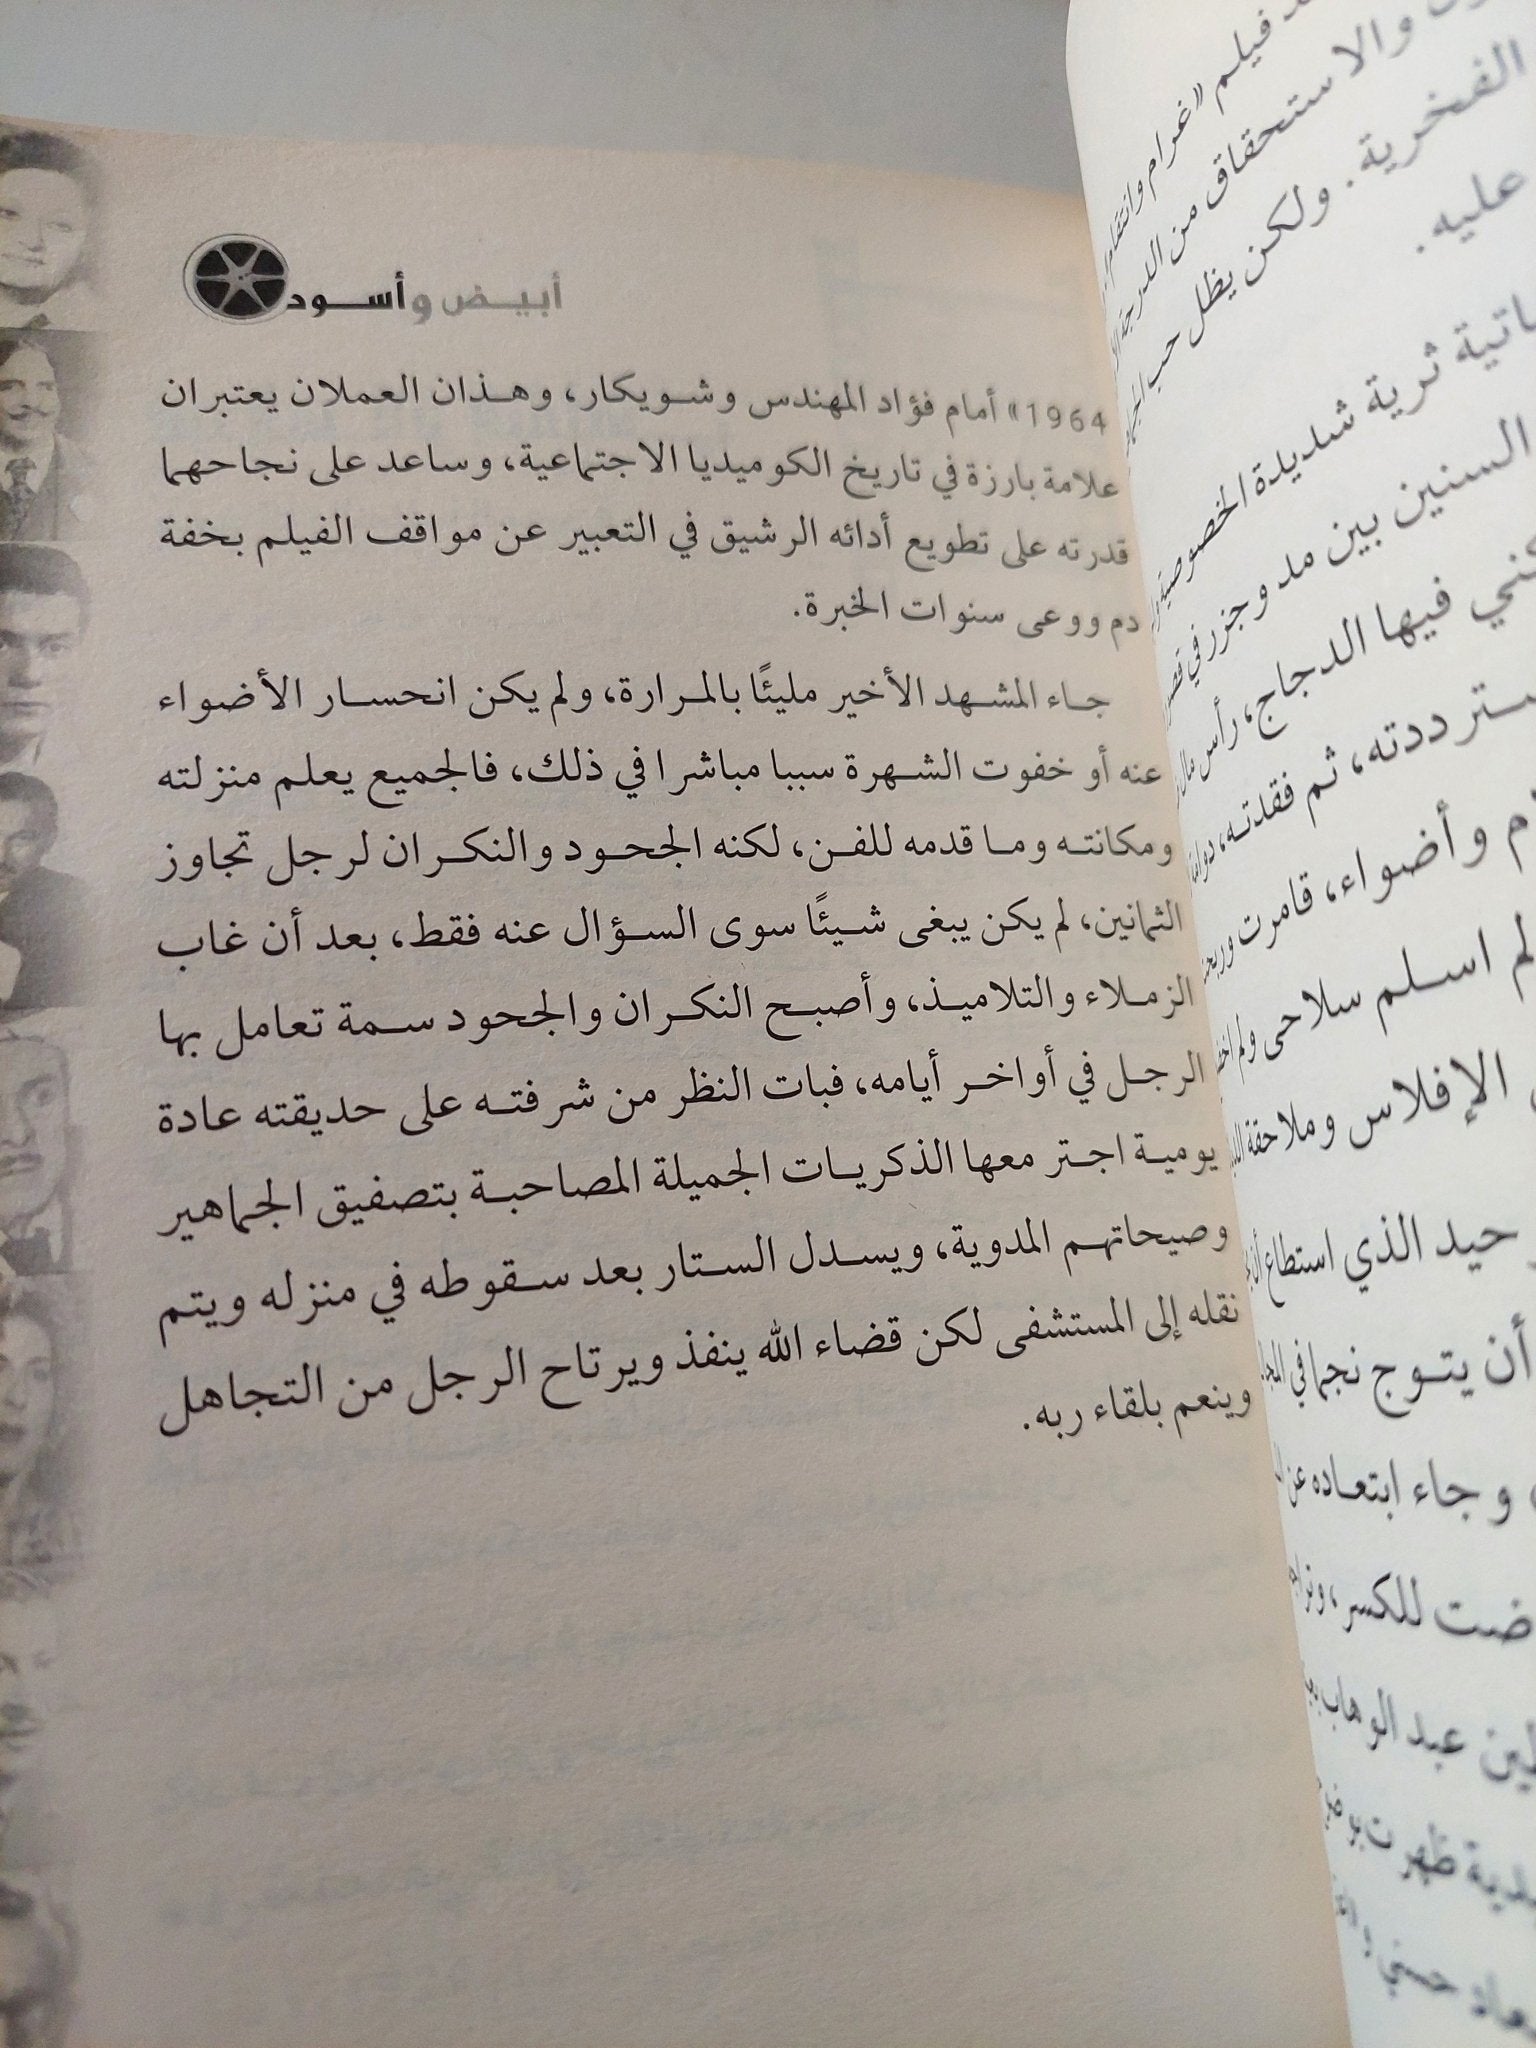 أبيض وأسود
1964» أمام فؤاد المهندس وشويكار، وهذان العملان يعتبران
علامة بارزة في تاريخ الكوميديا الاجتماعية، وساعد على نجاحهما
قدرته على تطويع أدائه الرشيق في التعبير عن مواقف الفيلم بخفة
دم ووعى سنوات الخبرة.
جاء المشهد الأخير مليئًا بالمرارة، ولم يكن انحسار الأضواء
عنه أو خفوت الشهرة سببا مباشرا في ذلك، فالجميع يعلم منزلته
ومكانته وما قدمه للفن، لكنه الجحود والنكران لرجل تجاوز
الثمانين، لم يكن يبغى شيئًا سوى السؤال عنه فقط، بعد أن غاب
الزملاء والتلاميذ، وأصبح النكران والجحود سمة تعامل بها
الرجل في أواخر أيامه، فبات النظر من شرفته على حديقته عادة
يومية اجتر معها الذكريات الجميلة المصاحبة بتصفيق الجماهير
وصيحاتهم المدوية، ويسدل الستار بعد سقوطه في منزله ويتم
نقله إلى المستشفى لكن قضاء الله ينفذ ويرتاح الرجل من التجاهل
وينعم بلقاء ربه.
فيلم «غرام وانتقام
والاستحقاق من الدرجة
الفخرية. ولكن يظل حب
عليه.
ثرية شديدة الخصوصية
السنين بين مد وجزر في
فيها الدجاج، رأس مال
ثم فقدته،
وأضواء، قامرت
لم اسلم سلاحى ولم
الإفلاس وملاحقة
الذي استطاع أن
أن يتوج نجما في
وجاء ابتعاده عن
للكسر،
عبد الوهاب
ظهرت